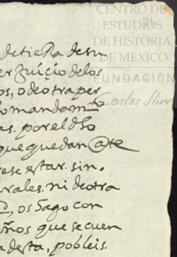 CENTRO DE
ESTUDIOS
DE HISTORIA
DE MÉXICO
FUNDACIÓN
Carlos Slim
de tierra de su
serbicio de los
os, o de otra per
mandamto
as. por el dho
que quedan
rese estar. sin.
urales. ni de otra
con
años que se cuen
ta desta, pobleis.